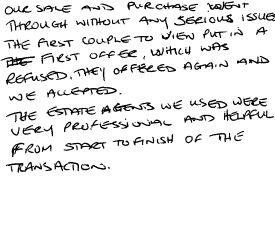 OUR SALE AND PURCHASE WENT
THROUGH WITHOUT ANY SERIOUS ISSUE
THE FIRST COUPLE TO VIEW PUT IN A
FIRST OFFER, WHICH WAS
REFUSED, THEY OFFERED AGAIN AND
WE ACCEPTED.
THE ESTATE AGENTS WE USED WERE
VERY PROFESSIONAL AND HELPFUL
FROM START TO FINISH OF THE
TRANSACTION.